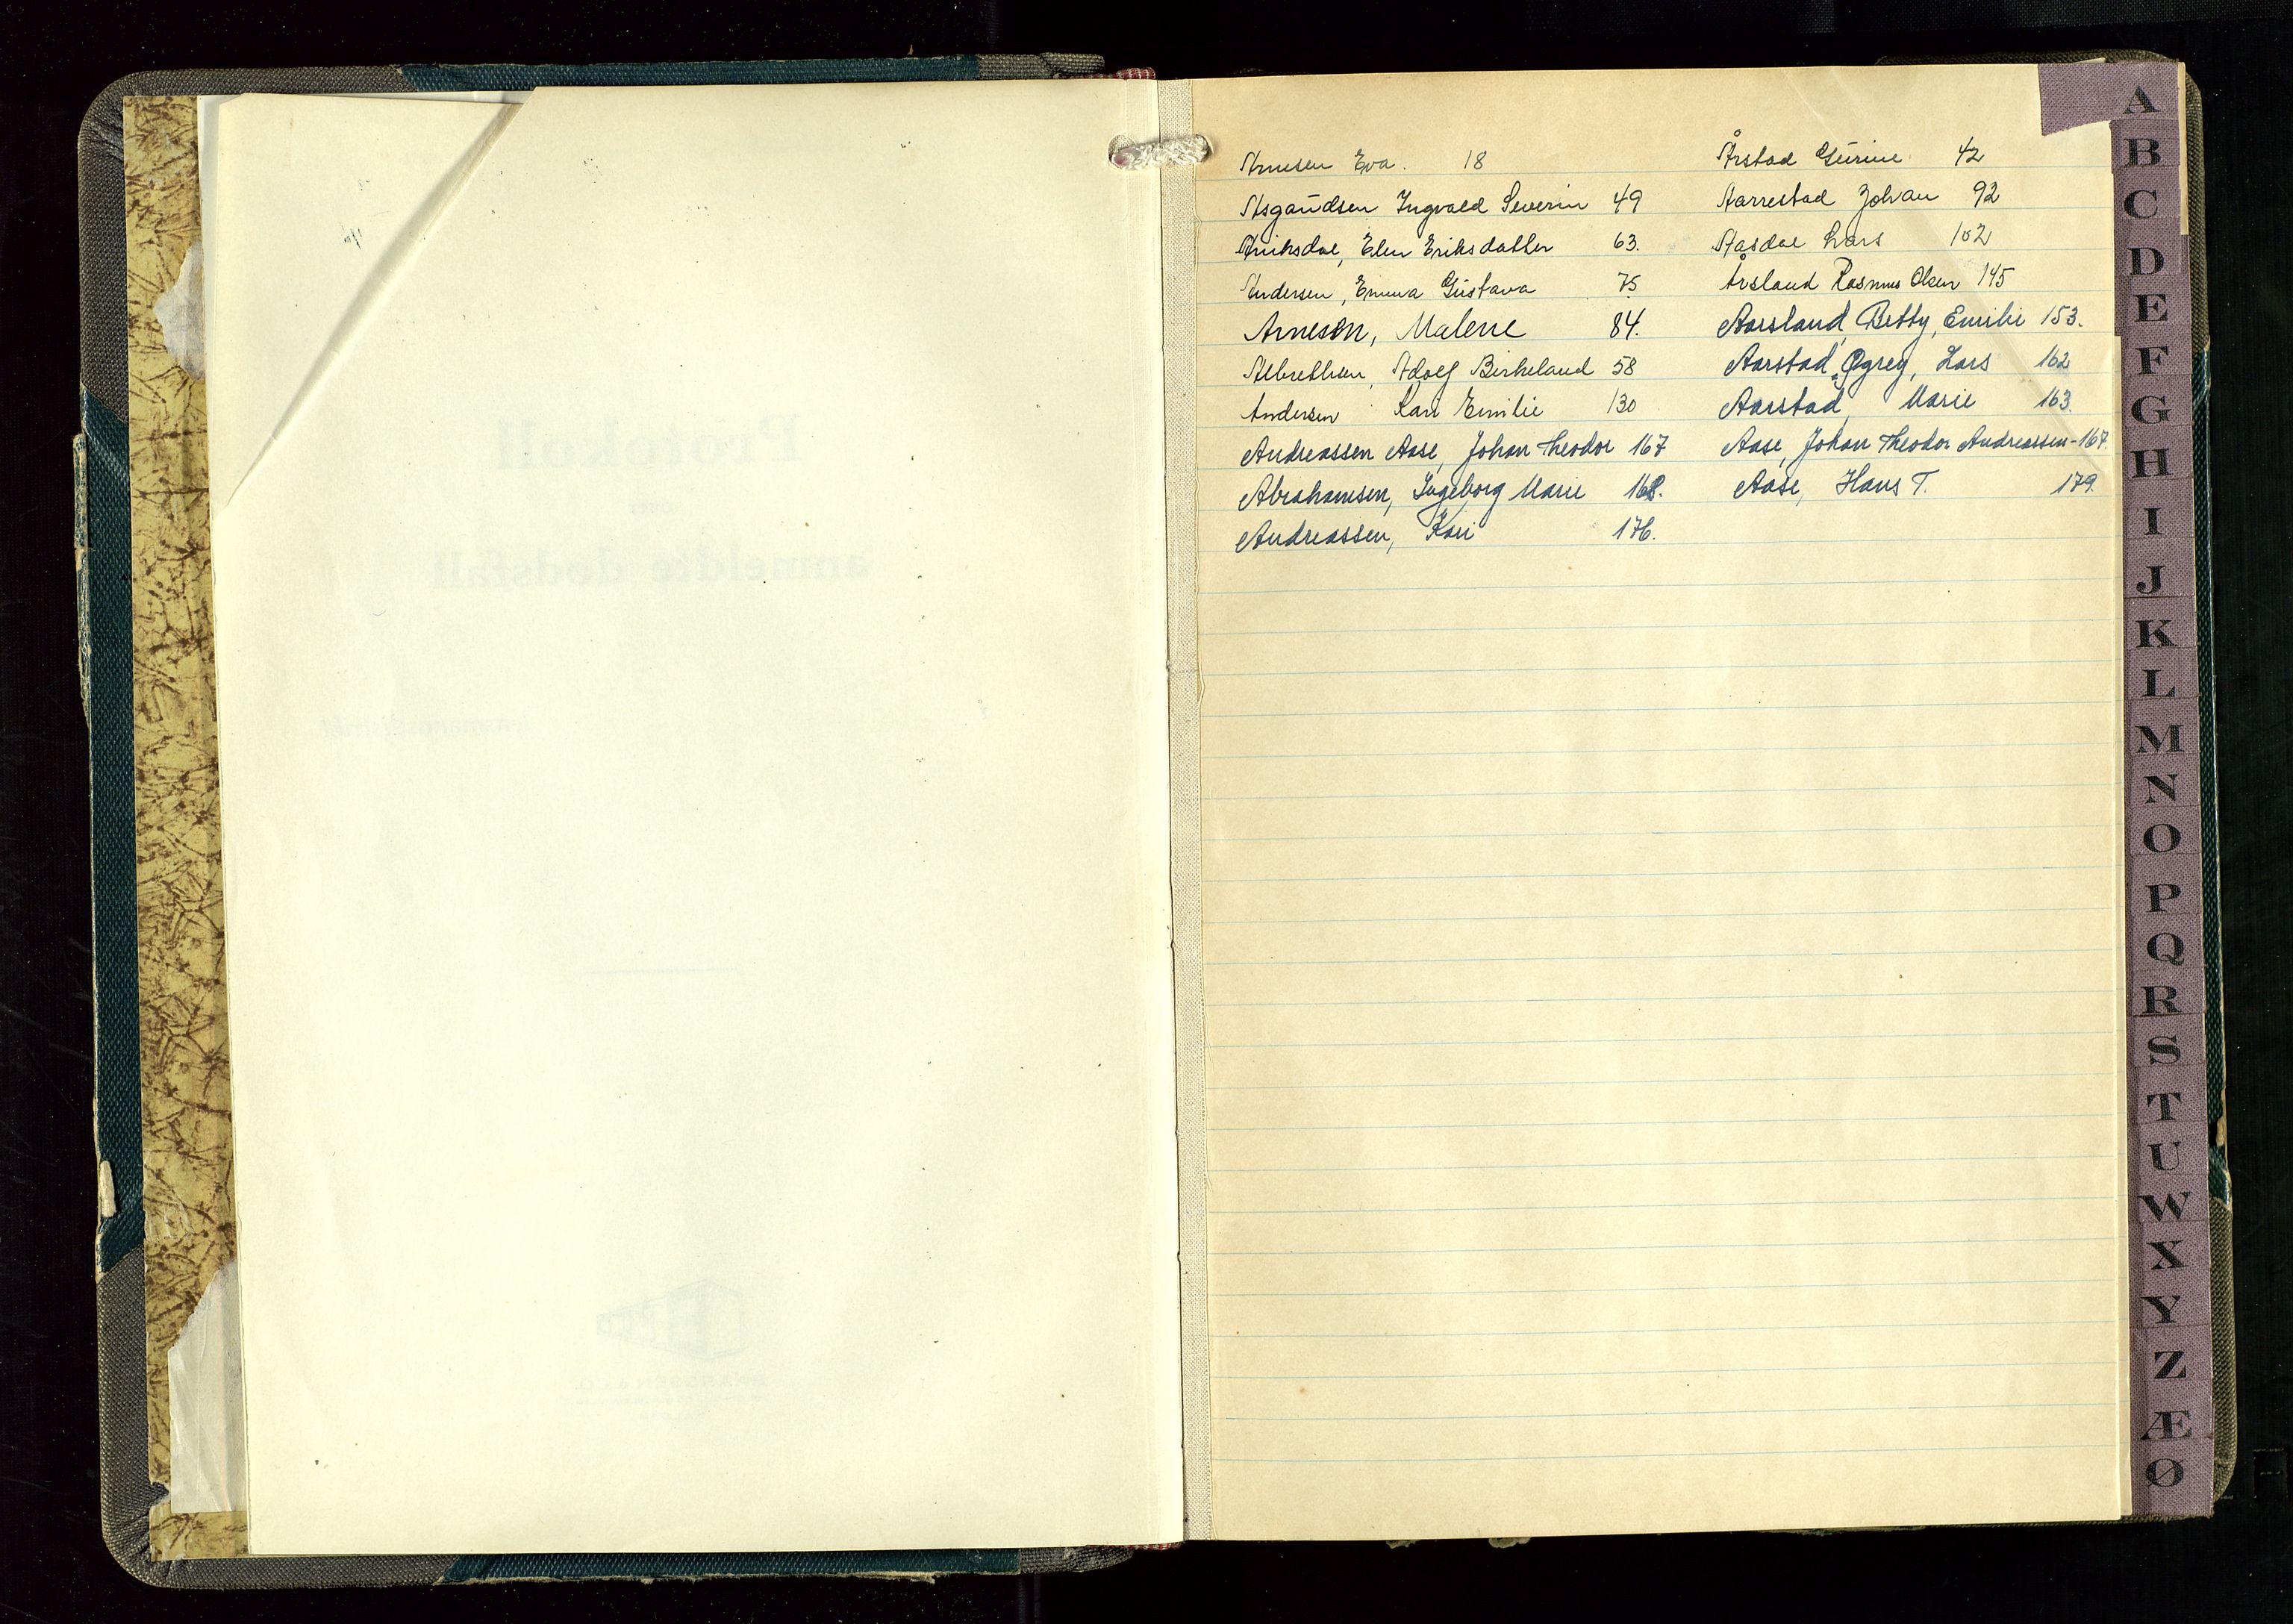 Arnesen Eva. 18
Asgaudsen Ingvald Severin 49
Eriksdatter 63.
Andersen, Emma Gustava 75
Arnesen, Malene 84.
Adolf Birkeland 58
Andersen Kari Emilie 130
Andreassen Aase, Johan Theodor 167
Abrahamsen, Ingeborg Marie 168.
Andreassen, Kari 176.
Årstad Gurine 42
Aarrestad Johan 92
Aasdal Lars 102
Årsland Rasmus Olsen 145
Aarsland, Betty, Emilie 153.
Aarstad, Øgrey, Lars 162
Aarstad, Marie 163.
Aase, Johan Theodor Andreassen - 167.
Aase, Hans T. 179.
A
B
C
D
E
F
G
H
I
J
K
L
M
N
O
P
Q
R
S
T
U
W
X
Y
Z
Æ
Ø
Protokoll
over
anmeldte dødsfall